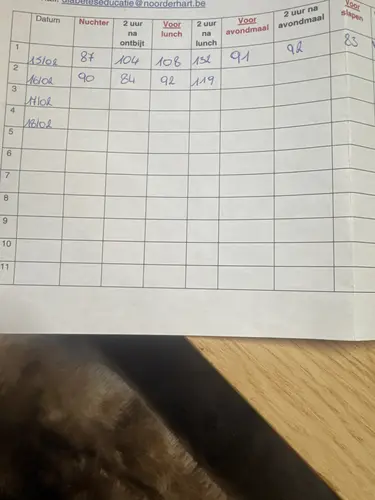 diabeteseducatie@noorderhart.be
Datum Nuchter 2 uur na ontbijt Voor lunch 2 uur na lunch Voor avondmaal 2 uur na avondmaal Voor slapen
1 15/02 87 104 108 132 91 92 83
2 16/02 90 84 92 119
3 17/02
4 18/02
5
6
7
8
9
10
11